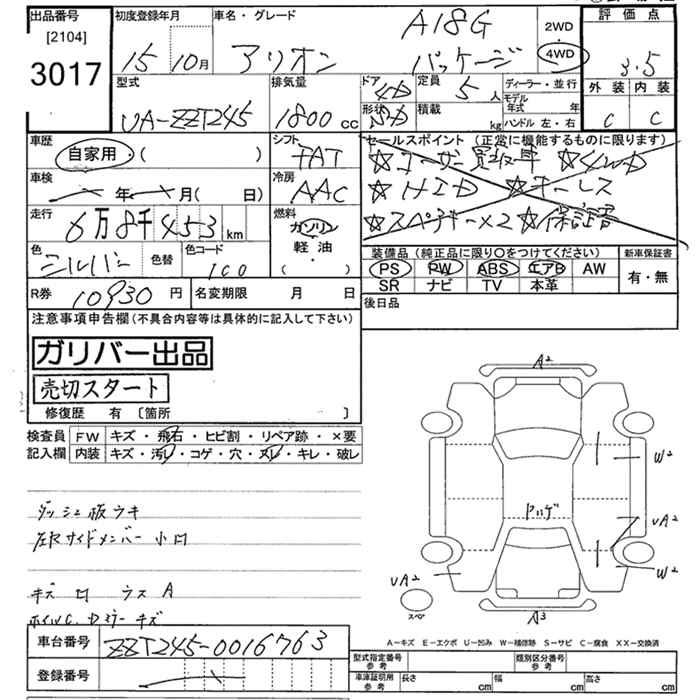 出品番号 [2104] 3017
初度登録年月 15 10月
車名・グレード アリオン A18G パッケージ
2WD 4WD
評価点 3.5
外装 内装
C C
型式 UA-ZZT245
排気量 1800 cc
ドア 4D
形状 SD
定員 5人
積載 kg
ディーラー・並行
モデル年式 年
ハンドル 左・右
車歴 自家用・( )
シフト FAT
セールスポイント (正常に機能するものに限ります)
☆ユーザー買取車 ☆4WD
☆HID ☆キーレス
☆スペアキー×2 ☆保証書
車検 年 月( 日)
冷房 AAC
走行 6万8千453km
燃料 ガソリン・軽油・( )
色 シルバー 色替
色コード 1C0
装備品 (純正品に限り〇をつけてください)
PS PW ABS エアB AW
SR ナビ TV 本革
新車保証書 有・無
R券 10930円
名変期限 月 日
後日品
注意事項申告欄(不具合内容等は具体的に記入して下さい)
ガリバー出品
売切スタート
修復歴 有 〔箇所 〕
検査員記入欄
FW キズ・飛石・ヒビ割・リペア跡・×要
内装 キズ・汚レ・コゲ・穴・スレ・キレ・破レ
ダッシュ板ウキ
左Rサイドメンバー小凹
キズ 凹 ウス A
ホイルC. キズ
A2
W2
UA2
W2
UA2
A3
スペア
A-キズ E-エクボ U-凹み W-補修跡 S-サビ C-腐食 XX-交換済
車台番号 ZZT245-0016763
登録番号
型式指定番号 参考
類別区分番号 参考
車庫証明用 参考 長さ cm 幅 cm 高さ cm